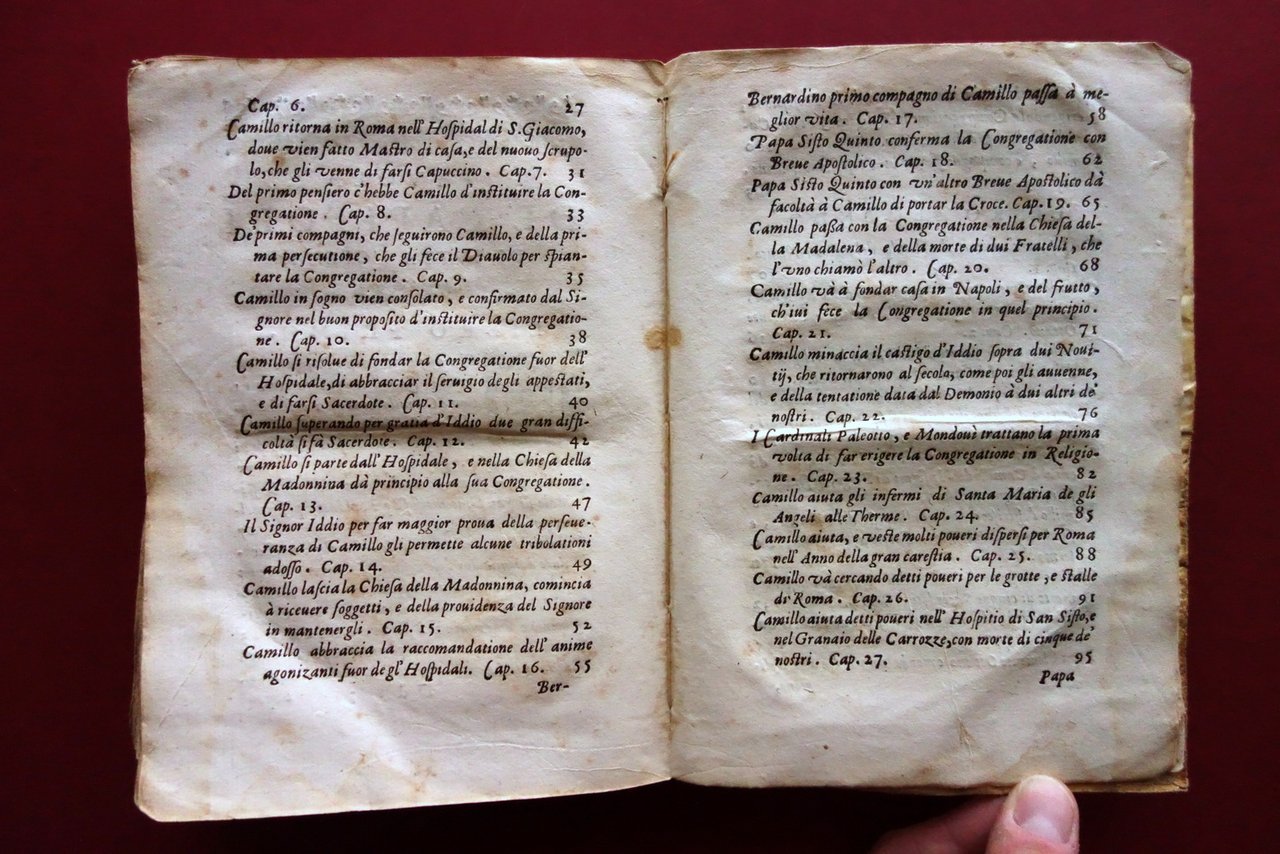 Cap. 6. 27
Camillo ritorna in Roma nell'Hospidal di S. Giacomo,
doue vien fatto Mastro di casa, e del nuouo scrupo-
lo, che gli venne di farsi Capuccino. Cap. 7. 31
Del primo pensiero c'hebbe Camillo d'instituire la Con-
gregatione. Cap. 8. 33
De' primi compagni, che seguirono Camillo, e della pri-
ma persecutione, che gli fece il Diauolo per spian-
tare la Congregatione. Cap. 9. 35
Camillo in sogno vien consolato, e confirmato dal Si-
gnore nel buon proposito d'instituire la Congregatio-
ne. Cap. 10. 38
Camillo si risolue di fondar la Congregatione fuor dell'
Hospidale, di abbracciar il seruigio degli appestati,
e di farsi Sacerdote. Cap. 11. 40
Camillo superando per gratia d'Iddio due gran diffi-
coltà si fà Sacerdote. Cap. 12. 42
Camillo si parte dall'Hospidale, e nella Chiesa della
Madonnina dà principio alla sua Congregatione.
Cap. 13. 47
Il Signor Iddio per far maggior proua della perseue-
ranza di Camillo gli permette alcune tribolationi
adosso. Cap. 14. 49
Camillo lascia la Chiesa della Madonnina, comincia
à riceuere soggetti, e della prouidenza del Signore
in mantenergli. Cap. 15. 52
Camillo abbraccia la raccomandatione dell'anime
agonizanti fuor degl'Hospidali. Cap. 16. 55
Ber-
Bernardino primo compagno di Camillo passa à me-
glior vita. Cap. 17. 58
Papa Sisto Quinto conferma la Congregatione con
Breue Apostolico. Cap. 18. 62
Papa Sisto Quinto con vn'altro Breue Apostolico dà
facoltà à Camillo di portar la Croce. Cap. 19. 65
Camillo passa con la Congregatione nella Chiesa del-
la Madalena, e della morte di dui Fratelli, che
l'vno chiamò l'altro. Cap. 20. 68
Camillo và à fondar casa in Napoli, e del frutto,
ch'iui fece la Congregatione in quel principio.
Cap. 21. 71
Camillo minaccia il castigo d'Iddio sopra dui Noui-
tij, che ritornarono al secolo, come poi gli auuenne,
e della tentatione data dal Demonio à dui altri de'
nostri. Cap. 22. 76
I Cardinali Paleotto, e Mondouì trattano la prima
volta di far erigere la Congregatione in Religio-
ne. Cap. 23. 82
Camillo aiuta gli infermi di Santa Maria de gli
Angeli alle Therme. Cap. 24. 85
Camillo aiuta, e veste molti poueri dispersi per Roma
nell'Anno della gran carestia. Cap. 25. 88
Camillo và cercando detti poueri per le grotte, e stalle
di Roma. Cap. 26. 91
Camillo aiuta detti poueri nell'Hospitio di San Sisto, e
nel Granaio delle Carrozze, con morte di cinque de'
nostri. Cap. 27. 95
Papa